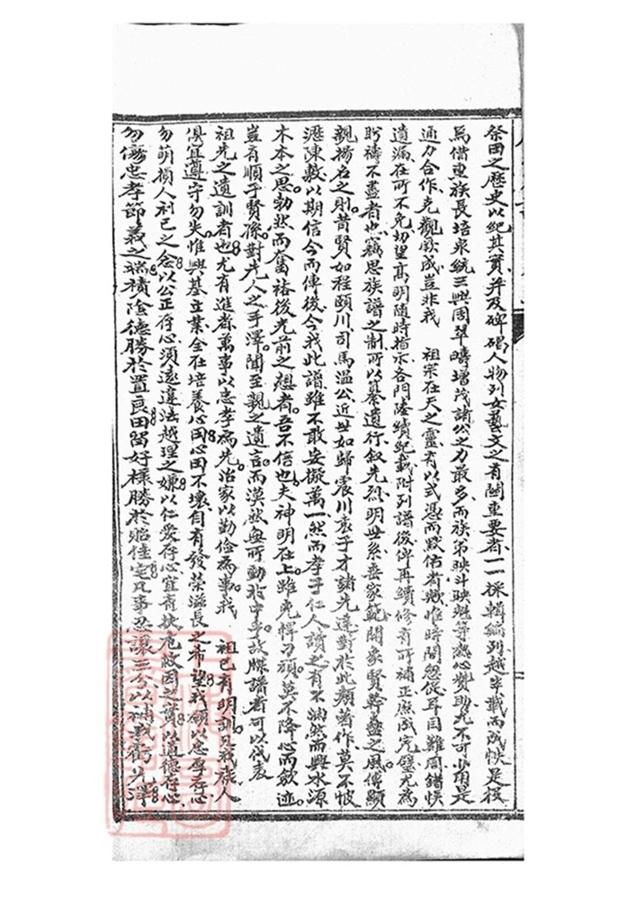 祭田之歷史以紀其實并及碑碣人物列女藝文之有關重要者一一採輯編列越半載而成帙是役
焉借重族長培來統三興周翠疇增茂諸公之力最多而族弟映斗映魁等熱心贊助尤不可少用是
通力合作克觀厥成豈非我 祖宗在天之靈有以式憑而默佑者歟惟時間怱促耳目難周錯悞
遺漏在所不免切望高明隨時指示各門隆蹟紀載附列譜後俾再續修有所補正庶成完璧尤為
盼禱不盡者也竊思族譜之制所以纂遺行叙先烈明世系垂家範闡象賢幹蠱之風傳顯
親揚名之則昔賢如程頤川司馬溫公近世如歸震川袁子才諸先達對於此類著作莫不披
瀝陳敷以期信今而傳後今我此譜雖不敢妄擬萬一然而孝子仁人讀之有不油然而興水源
木本之思勃然而奮裕後光前之想者吾不信也夫神明在上雖克悍刃頑莫不降心而歛迹
豈有順子賢孫對先人之手澤聞至親之遺言而漠然無所動於中乎故牒譜者可以代表
祖先之遺訓者也尤有進者萬事以忠孝為先治家以勤儉為事我 祖已有明訓凡我族人
俱宜遵守勿失惟興基立業全在培養心田心田不壞自有發榮滋長之希望我願以忠厚存心
勿萌損人利己之念以公正存心須遠違法越理之嫌以仁愛存心宜有扶危救困之實以道德存心
勿傷忠孝節義之端積陰德勝於置良田留好樣勝於貽佳宅凡事忍讓三分以補我